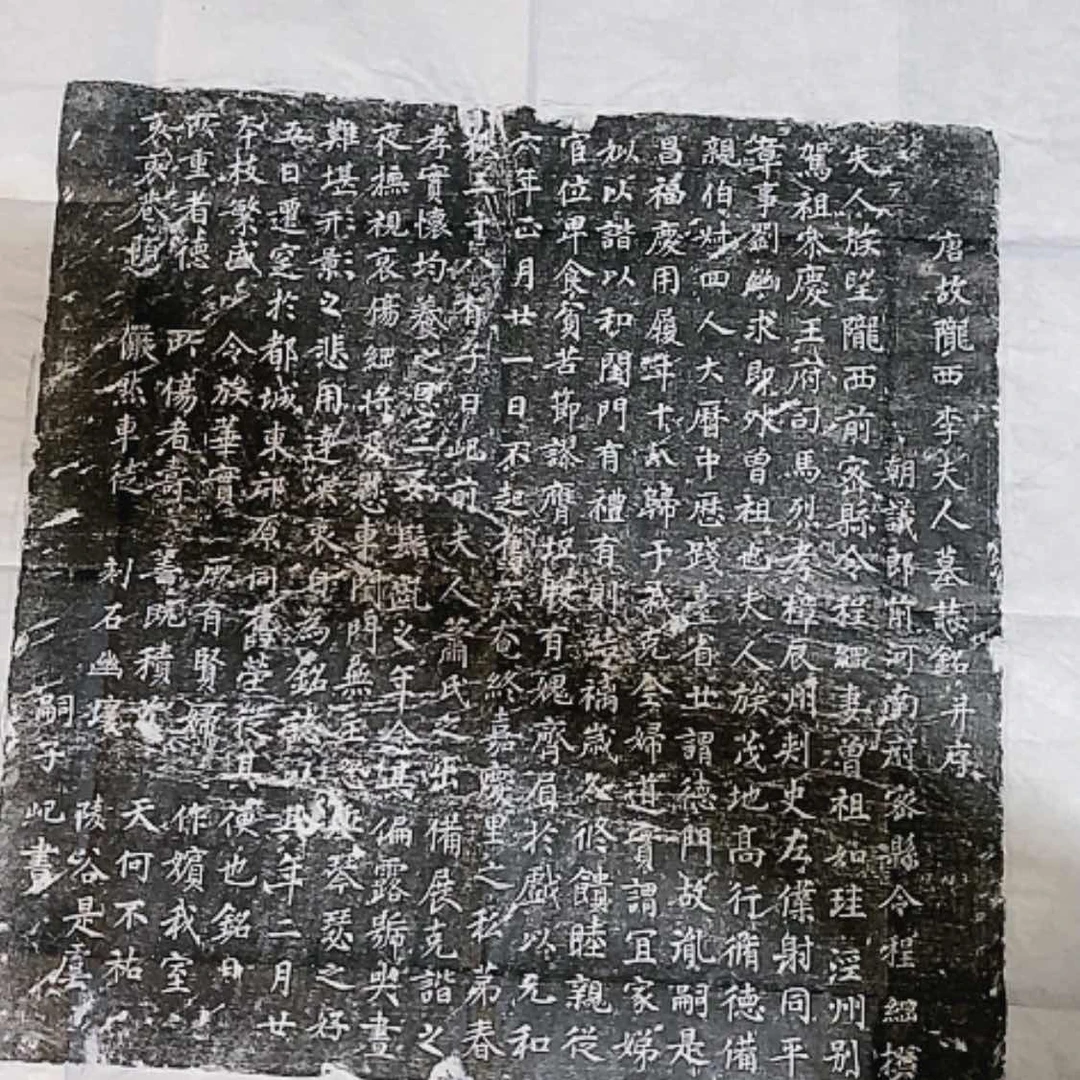 唐故隴西李夫人墓誌銘并序
朝議郎前河南府密縣令程縕撰
夫人族望隴西前密縣令程縕妻曾祖如珪涇州別
駕祖叅慶王府司馬烈考樟辰州刺史左僕射同平
章事劉幽求即外曾祖也夫人族茂地高行脩德備
親伯姊四人大曆中歷踐臺省廿謂德門故胤嗣是
昌福慶用履年十八歸于我克全婦道實謂宜家娣
以諧以和閨門有禮有則結褵歲久修饋睦親從
官位卑食貧苦節謬膺有愧齊眉於戲以元和
六年正月廿一日不起舊疾奄終嘉慶里之私第春
秋三十八有子曰屺前夫人蕭氏之出備展克諧之
孝實懷均養之恩二女齠齔之年令其偏露號哭晝
夜撫視哀傷縕將及懸車閨門無主琴瑟之好
難堪形影之悲用述深哀自為銘誌以其年二月廿
五日遷窆於都城東祁原同舊塋從其便也銘曰
本枝繁盛令族華實厥有賢婦作嬪我室
所重者德所傷者壽善既積天何不祐
哀哀巷儼然車徒刻石幽壤陵谷是虞
嗣子屺書